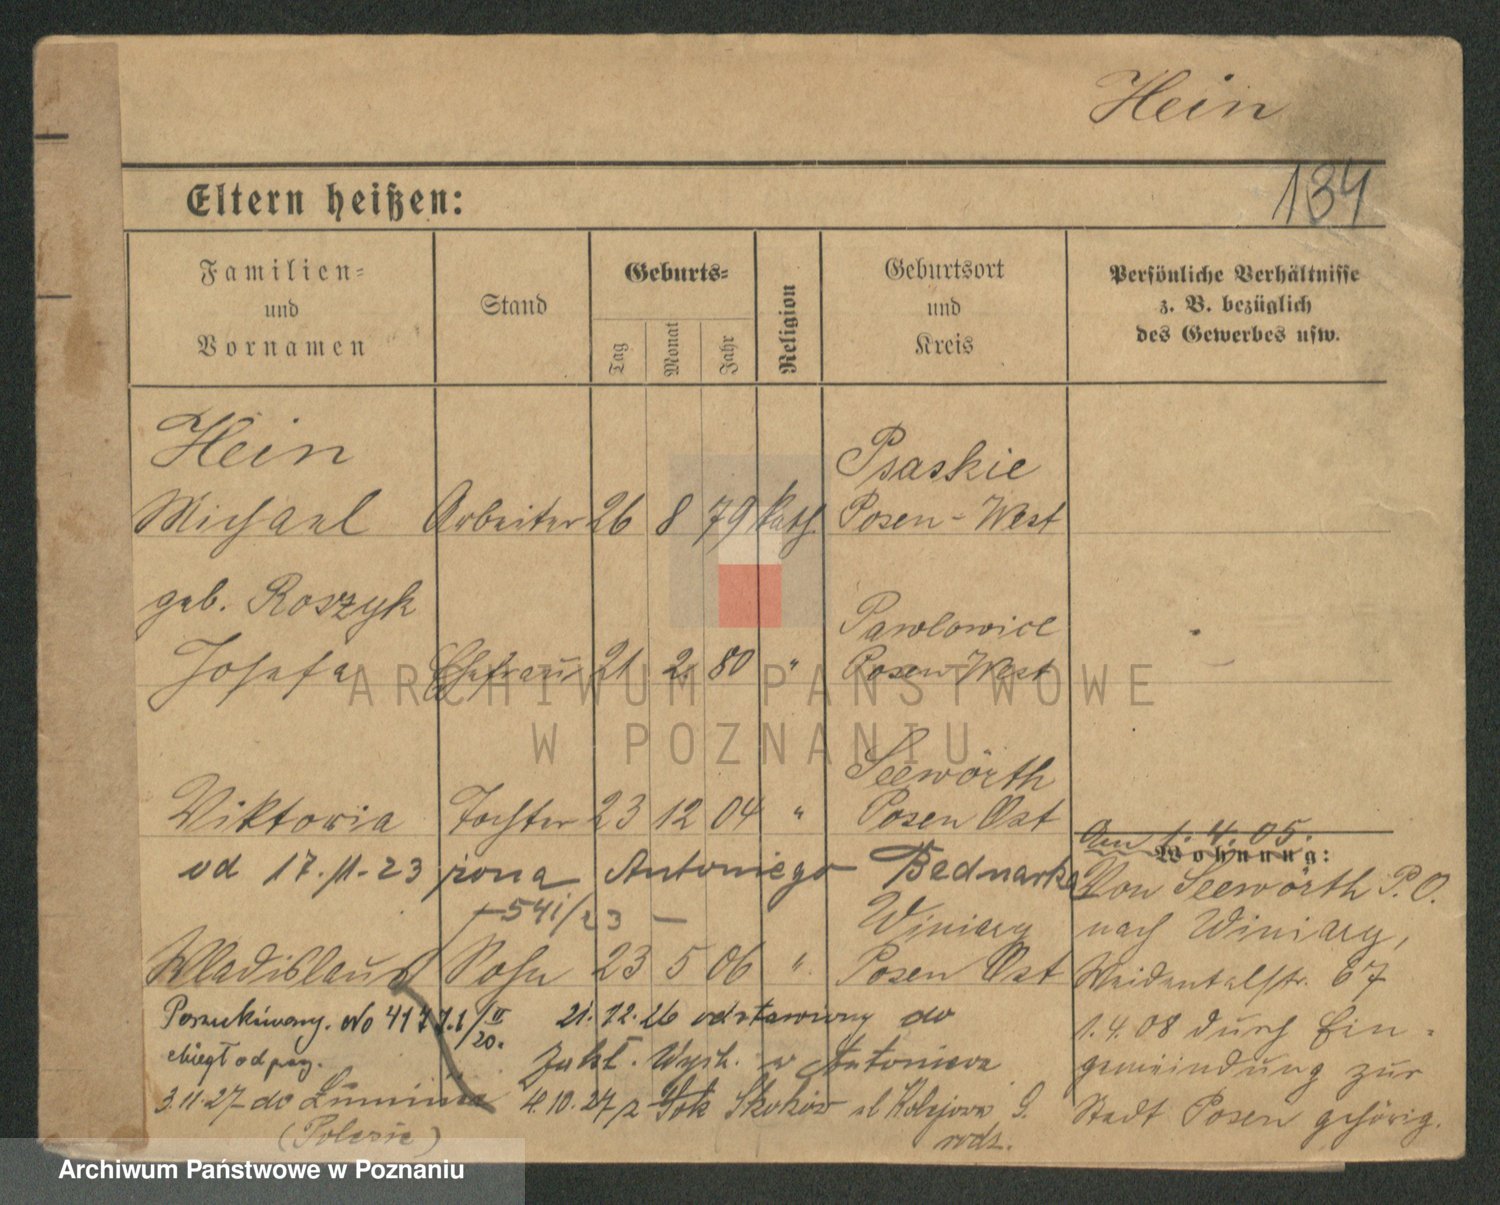 Hein
134
Eltern heißen:
Familien=
und
Vornamen
Stand
Geburts=
Tag
Monat
Jahr
Religion
Geburtsort
und
Kreis
Persönliche Verhältnisse
z. B. bezüglich
des Gewerbes usw.
Hein
Michael Arbeiter 26 8 79 kath. Psaskie
Posen-West
geb. Roszyk
Josefa Ehefrau 21 2 80 " Pawlowice
Posen West
Viktoria Tochter 23 12 04 " Seewörth
Posen Ost
od 17.11.23 żona Antoniego Bednarka
541/23 —
Wladislaus Sohn 23 5 06 " Winiary
Posen Ost
Poszukiwany. No 21.12.26 odstawiony do
Zakł. Wych. w
3.11.27 do
4.10.27 z Skoków
(Polesie)
rodz.
Am 1.4.05.
Wohnung:
Von Seewörth P.O.
nach Winiary,
Weidentalstr. 67
1.4.08 durch Ein-
gemeindung zur
Stadt Posen gehörig.
ARCHIWUM PAŃSTWOWE
W POZNANIU
Archiwum Państwowe w Poznaniu